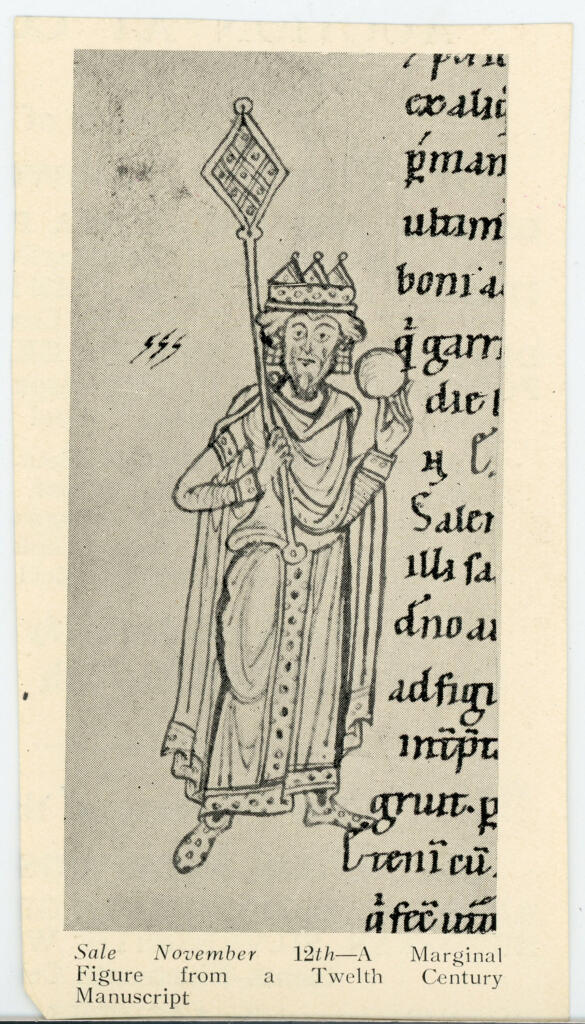 exaliq
p̄man
ultim
boni a
garri
die
Saler
illi sa
dn̄o au
ad figu
int̄p̄t
gruit. p
ten̄i cū
fec̄
Sale November 12th—A Marginal
Figure from a Twelth Century
Manuscript